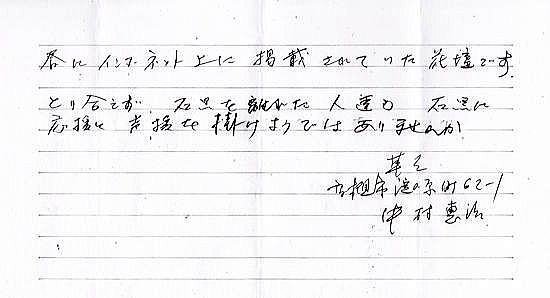 春にインターネット上に掲載されていた花壇です。
とり合えず 石黒を離れた人達も 石黒に
応援と声援を掛けようではありませんか
草々
市 の 町62-1
中村恵治